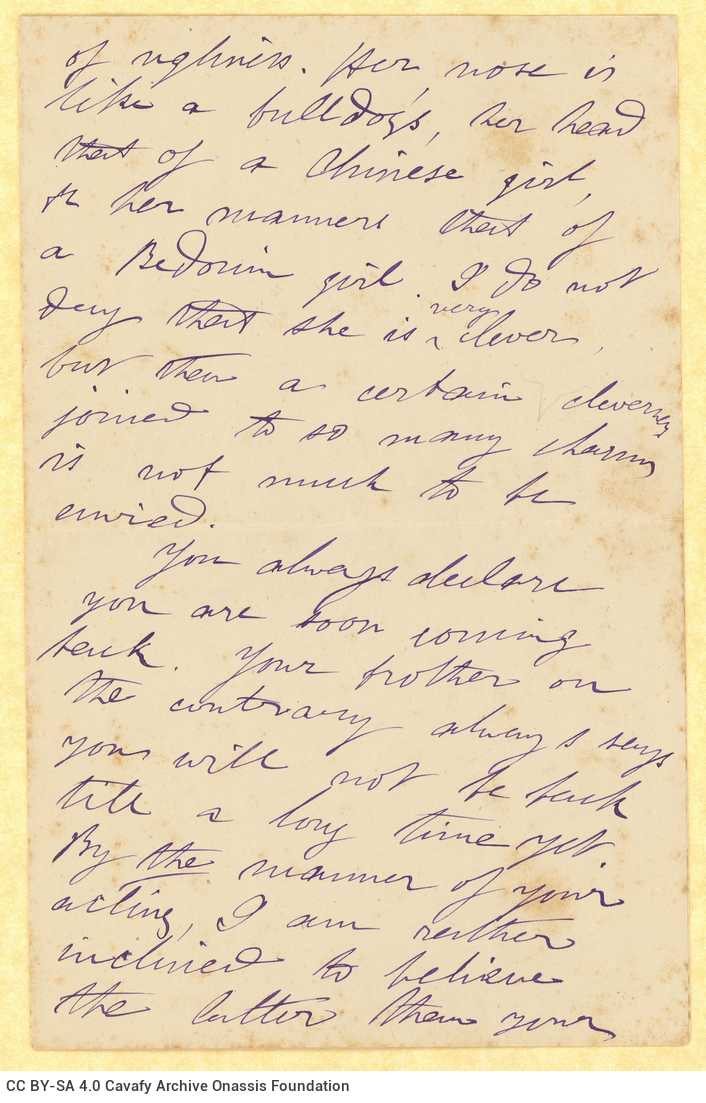 of ugliness. Her nose is
like a bulldog's, her head
that of a Chinese girl,
& her manners that of
a Bedouin girl. I do not
deny that she is very clever,
but then a certain cleverness
joined to so many charms
is not much to be
envied.
You always declare
you are soon coming
back. Your brother on
the contrary always says
you will not be back
till a long time yet.
By the manner of your
acting, I am rather
inclined to believe
the latter than your
CC BY-SA 4.0 Cavafy Archive Onassis Foundation